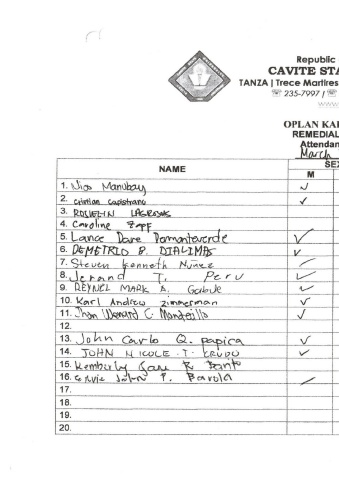 Republic
CAVITE STA
TANZA | Trece Martires
☏ 235-7997 / ☏
OPLAN KA
REMEDIAL
Attendan
March
NAME SEX
M
1. Nico Manubay ✓
2. cristian capistrano ✓
3. ROSVELIN
4. Caroline Zapf
5. Lance Dave Demonteverde ✓
6. DEMETRIO B. DIALIMAS ✓
7. Steven Kenneth Nuñez ✓
8. Jerand T. Peru ✓
9. REYNEL MARK A. ✓
10. Karl Andrew zimmerman ✓
11. Jhon Leonard C. ✓
12.
13. John Carlo Q. papica ✓
14. JOHN NICOLE T. ✓
15. Kemberly
16. John P. Barola ✓
17.
18.
19.
20.